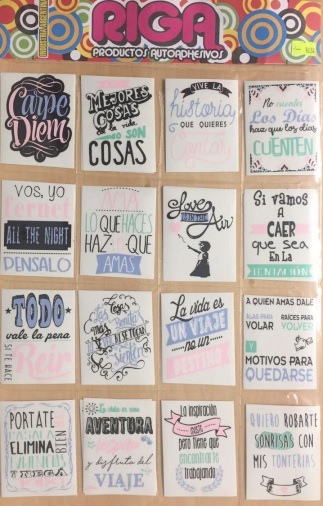 INDUSTRIA ARGENTINA
RIGA
PRODUCTOS AUTOADHESIVOS
Carpe
Diem
MEJORES
COSAS
de la vida
NO SON
COSAS
VIVE LA
historia
QUE QUIERES
Contar
No cuentes
Los Días
haz que los días
CUENTEN
VOS, YO
fernet
ALL THE NIGHT
PENSALO
AMA
LO QUE HACES
HAZ LO QUE
AMAS
Love
IS IN THE
Air
Si vamos
A
CAER
que sea
EN LA
TENTACION
TODO
vale la pena
SI TE HACE
Reir
La vida es
UN VIAJE
no un
DESTINO
A QUIEN AMAS DALE
ALAS PARA
VOLAR
RAÍCES PARA
VOLVER
Y
MOTIVOS PARA
QUEDARSE
PORTATE
BIEN
ELIMINA
La vida es una
AVENTURA
y disfruta del
VIAJE
La inspiración
existe
pero tiene que
encontrarte
trabajando
QUIERO ROBARTE
SONRISAS CON
MIS TONTERIAS